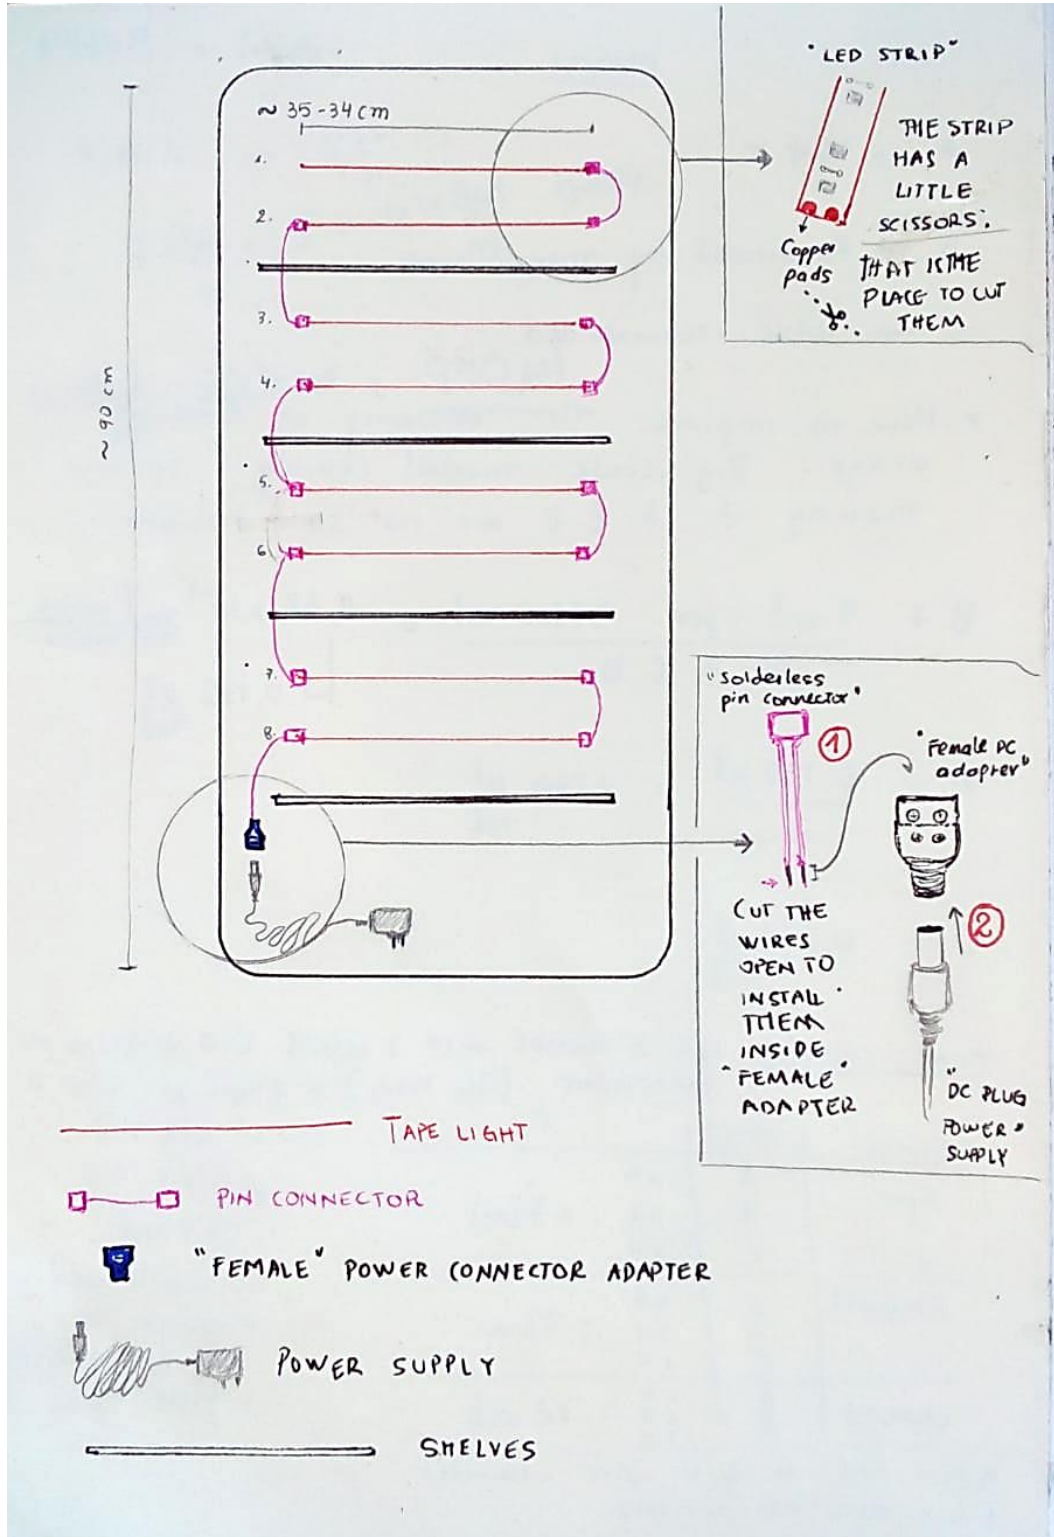 "LED STRIP"
THE STRIP
HAS A
LITTLE
SCISSORS:
THAT IS THE
PLACE TO CUT
THEM
Copper
pads
~ 35-34 cm
~ 90 cm
1.
2.
3.
4.
5.
6
7.
8.
"solderless
pin connector"
1
"Female DC
adapter"
CUT THE
WIRES
OPEN TO
INSTALL
THEM
INSIDE
"FEMALE"
ADAPTER
2
"DC PLUG
POWER"
SUPPLY
TAPE LIGHT
PIN CONNECTOR
"FEMALE" POWER CONNECTOR ADAPTER
POWER SUPPLY
SHELVES